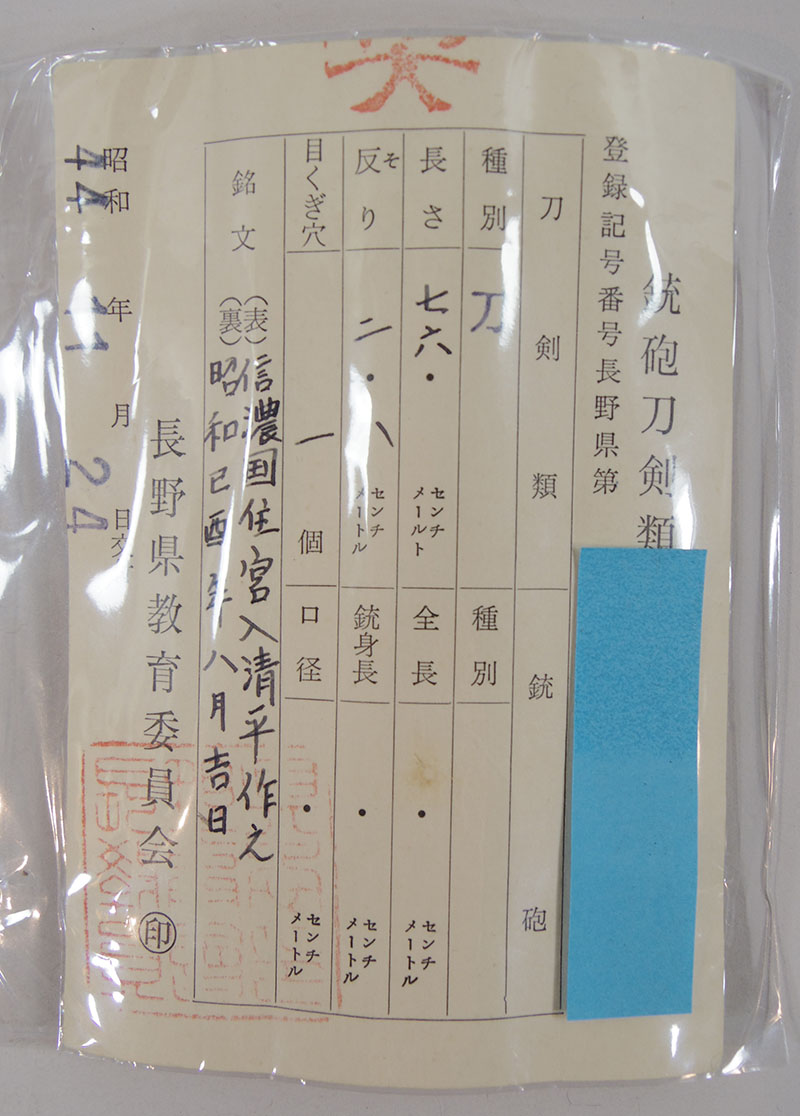 銃砲刀剣類
登録記号番号長野県第
刀剣類
種別 刀
長さ 七六・ センチメールト
反り そ 二・八 センチメートル
目くぎ穴 一個
銃砲
種別
全長 ・ センチメートル
銃身長 ・ センチメートル
口径 ・ センチメートル
銘文
(表)信濃国住宮入清平作之
(裏)昭和己酉年八月吉日
長野県教育委員会 印
昭和44年11月24日交